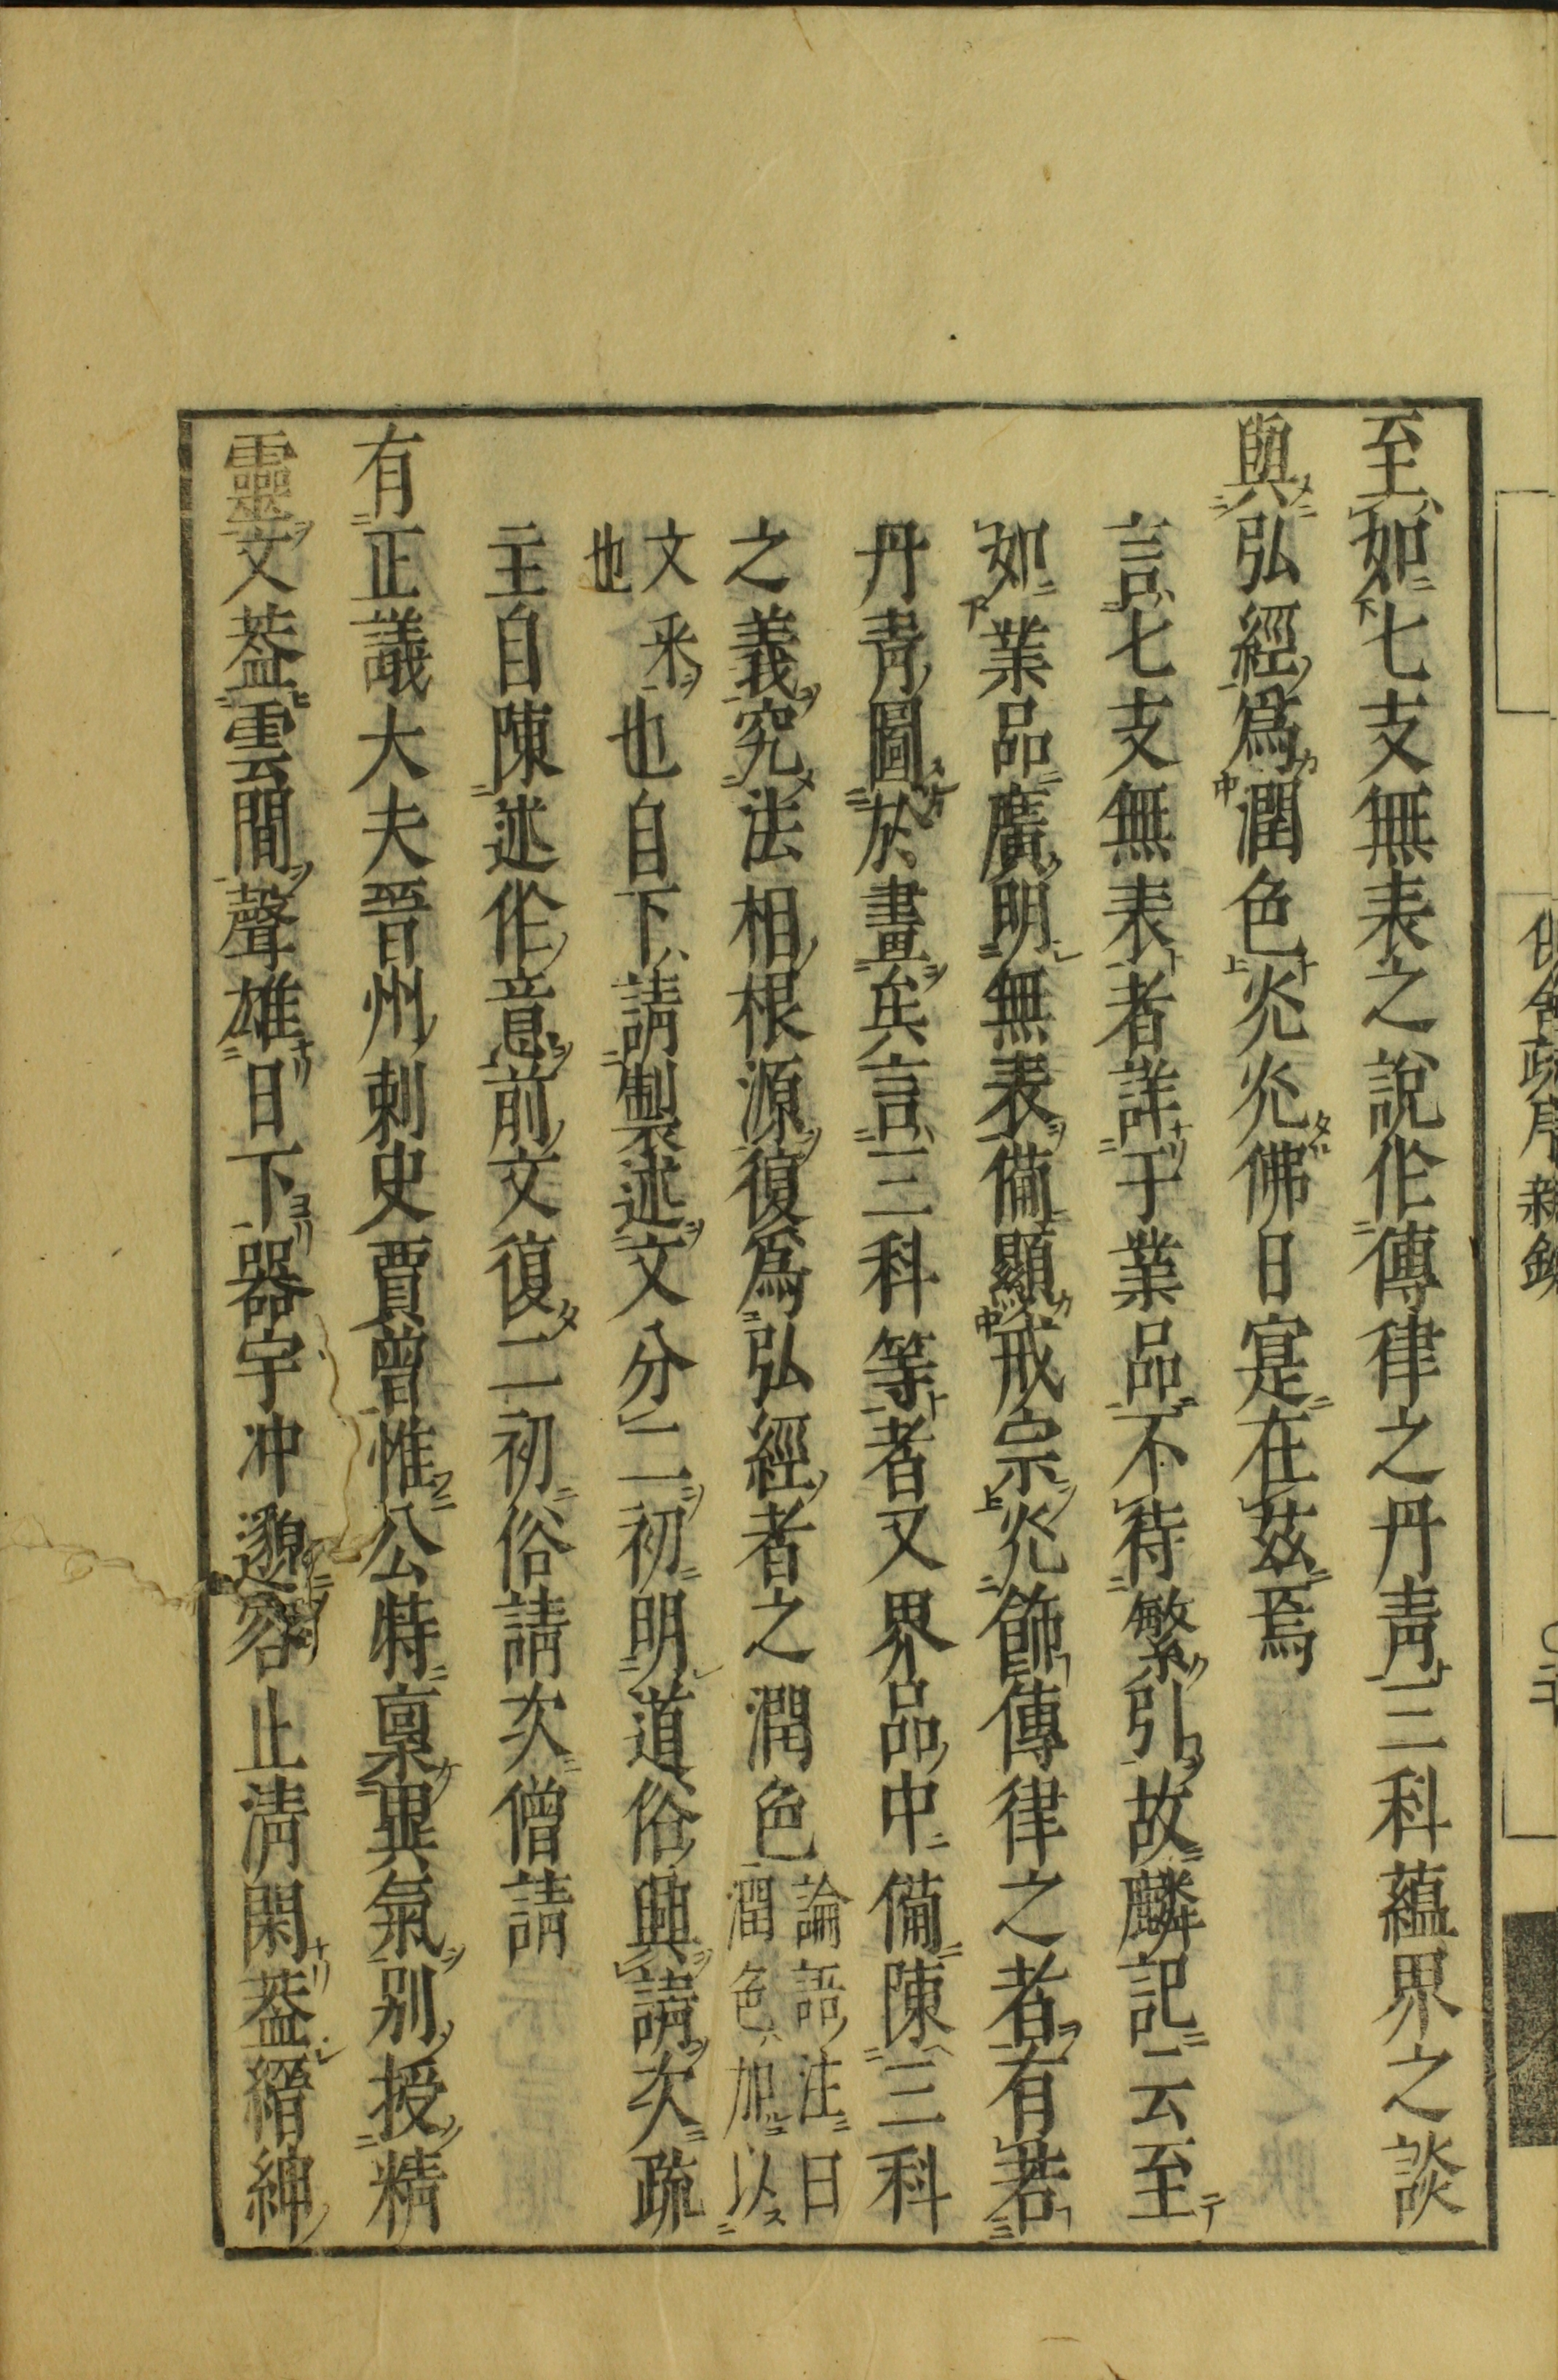 至如七支無表之說作傳律之丹靑三科蘊界之談
與弘經爲潤色灮灮佛日寔在茲焉
言七支無表者詳于業品不待繁引故麟記云至
如業品廣明無表備顯戒宗灮飾傳律之者有若
丹靑圖於畫矣言三科等者又界品中備陳三科
之義究法相根源復爲弘經者之潤色論語注曰潤色加以
文釆也也自下請製述文分二初明道俗興請次疏
主自陳述作意前文復二初俗請次僧請
有正議大夫晉州刺史賈曾惟公特稟異氣别授精
靈文葢雲間聲雄日下器宇冲邈容止淸閑葢縉紳